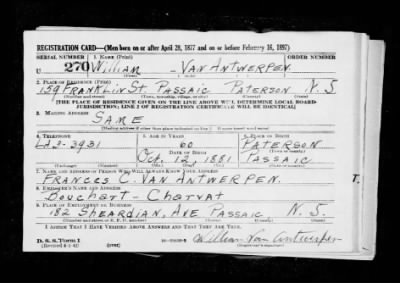 REGISTRATION CARD—(Men born on or after April 28, 1877 and on or before February 16, 1897)
SERIAL NUMBER 1. NAME (Print) ORDER NUMBER
U 270 William - Van Antwerpen
2. PLACE OF RESIDENCE (Print)
159 Franklin St. Passaic Paterson N. J.
(Number and street) (Town, township, village, or city) (County) (State)
[THE PLACE OF RESIDENCE GIVEN ON THE LINE ABOVE WILL DETERMINE LOCAL BOARD
JURISDICTION; LINE 2 OF REGISTRATION CERTIFICATE WILL BE IDENTICAL]
3. MAILING ADDRESS
Same
[Mailing address if other than place indicated on line 2. If same insert word same]
4. TELEPHONE 5. AGE IN YEARS 6. PLACE OF BIRTH
60 Paterson
LA. 3-3931 DATE OF BIRTH (Town or county)
Oct. 12, 1881 Passaic
(Exchange) (Number) (Mo.) (Day) (Yr.) (State or country)
7. NAME AND ADDRESS OF PERSON WHO WILL ALWAYS KNOW YOUR ADDRESS
Frances C. Van Antwerpen.
8. EMPLOYER'S NAME AND ADDRESS
9. PLACE OF EMPLOYMENT OR BUSINESS
182 Ave Passaic N. J.
(Number and street or R. F. D. number) (Town) (County) (State)
I AFFIRM THAT I HAVE VERIFIED ABOVE ANSWERS AND THAT THEY ARE TRUE.
D. S. S. Form 1
(Revised 4-1-42) (over) William Van Antwerpen